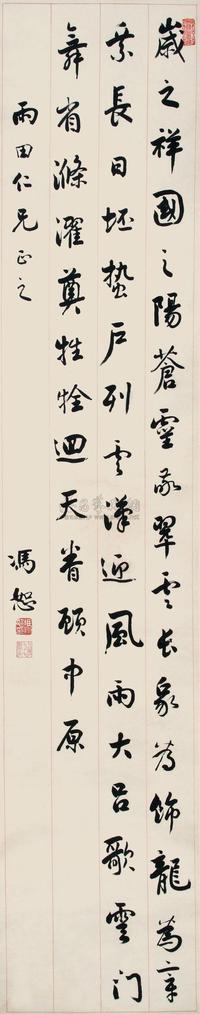 歲之祥國之陽蒼靈敬翠雲長象為飾龍為章
乘長日坯蟄戶列雲漢迎風雨大呂歌雲门
舞省滌濯奠牲牷迴天眷顧中原
雨田仁兄正之
馮恕